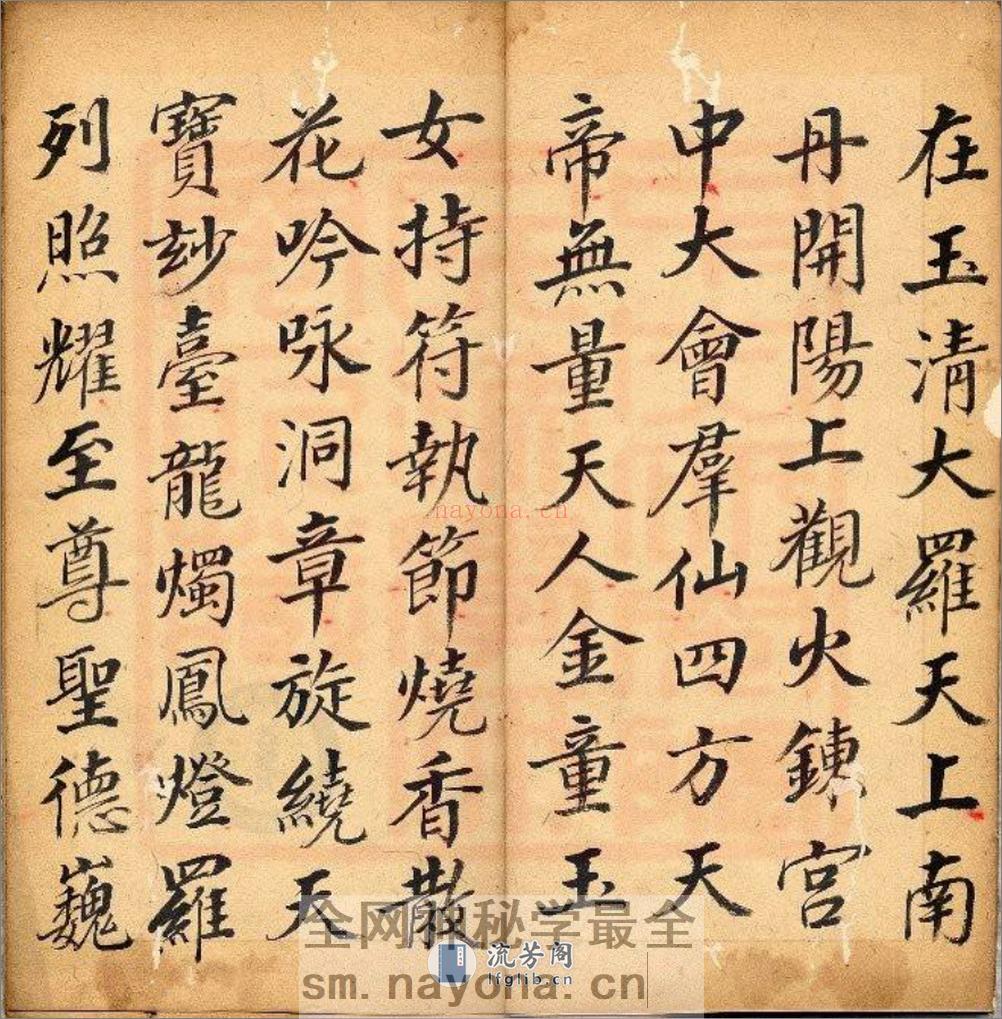 在玉清大羅天上南
丹開陽上觀火鍊宮
中大會羣仙四方天
帝無量天人金童玉
女持符執節燒香散
花吟咏洞章旋繞天
寶玅臺龍燭鳳燈羅
列照耀至尊聖德巍
nayona.cn
全网神秘学最全
流芳阁
lfglib.cn
sm.nayona.cn